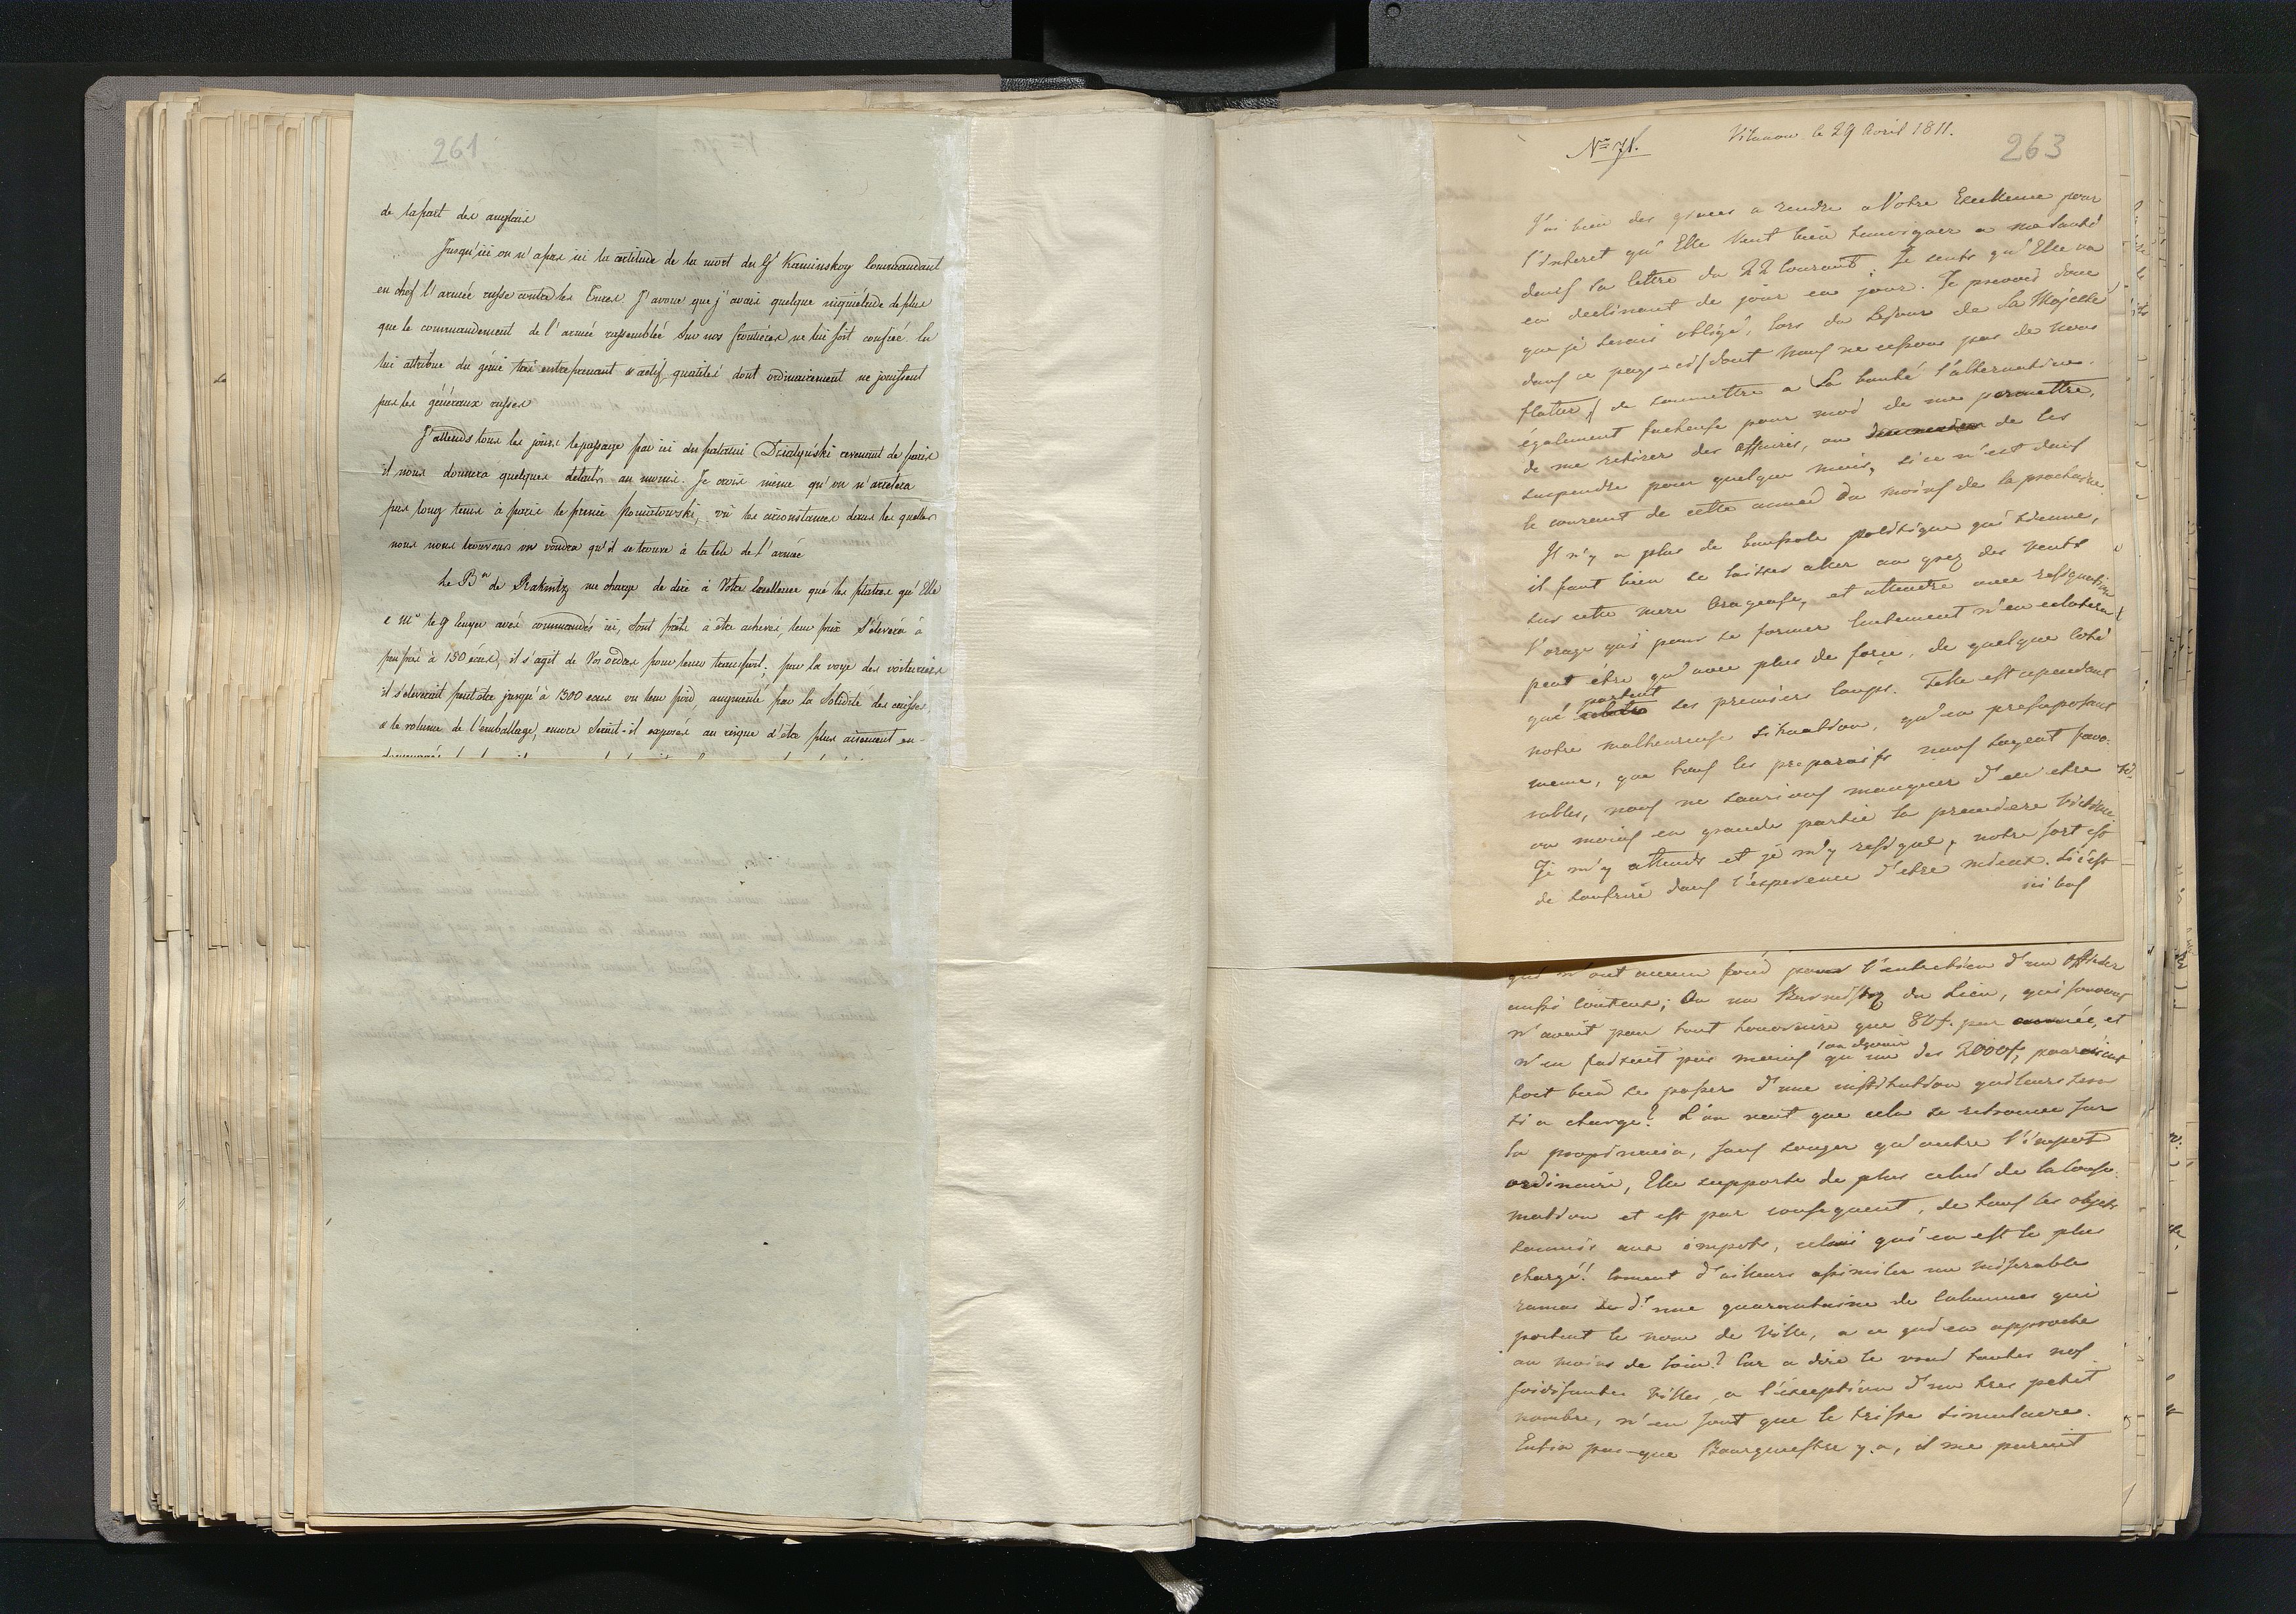 261
de la part des anglais
Jusqu'ici on n'a pas ici la certitude de la mort du Gl Kaminskoy Commandant
en chef l'armée russe contre les Turcs. J'avoue que j'avais quelque inquiétude de plus
que le commandement de l'armée rassemblée sur nos frontières ne lui soit confiée. On
lui attribue du génie très entreprenant & actif, qualités dont ordinairement ne jouissent
pas les généraux russes
J'attends tous les jours le passage par ici du palatin Dzialyński revenant de paris
il nous donnera quelques details au moins. Je crois même qu'on n'arretera
pas long tems à paris le prince poniatowski, vû les circonstances dans les quelles
nous nous trouvons on voudra qu'il se trouve à la tête de l'armée
Le Bon de Raknitz me charge de dire à Votre Excellence que les platres qu'Elle
& Mr le g lenger avés commandés ici, sont prêts à être achevés, leur prix s'elevera à
peu près à 150 écus, il s'agit de Vos ordres pour leur transport; par la voye des voituriers
il s'eleverait peut etre jusqu'à 1300 ecus vu leur poid, augmenté par la solidité des caisses
& le volume de l'emballage, encore serait-il exposé au risque d'être plus aisement en-
No 71.
Vilanow le 29 Avril 1811.
263
J'ai bien des graces a rendre a Votre Excellence pour
l'interet qu'Elle veut bien temoigner a ma santé
dans sa lettre du 22 Courant. Je sents qu'Elle va
en declinant de jour en jour. Je prevois donc
que je serais obligé, lors du Sejour de Sa Majesté
dans ce pays-ci / dont nous ne cessons pas de nous
flatter / de soumettre a Sa bonté l'alternative.
également facheuse pour moi de me permettre,
de me retirer des affaires, ou de les
suspendre pour quelque mois, si ce n'est dans
le courant de cette année du moins de la prochaine.
Il n'y a plus de boussole politique qui tienne,
il faut bien se laisser aller au grez des vents
sur cette mere Orageuse, et attendre avec resignation
l'orage qui pour se former lentement n'en eclatera
peut être qu'avec plus de force, de quelque coté
que partent ses premiers coups. Telle est cependant
notre malheureuse situation, qu'en presuposant
meme, que tous les preparatifs nous soyent favo-
rables, nous ne saurions manquer d'en etre
au moins en grande partie la premiere victime.
Je m'y attends et je m'y resigne, notre sort est
de soufrir dans l'esperence d'etre mieux. Si c'est
ici bas
qui n'ont aucun fond pour l'entretien d'un officier
aussi couteux; Ou un Burmistrz du Lieu, qui souvent
n'avoit pour tout honoraire que 80 f. par année, et
n'en faisoit pas moins son devoir qu'un des 2000 f, pouroient
fort bien se passer d'une institution qui leur sera
si a charge? L'on veut que cela se retrouve sur
la propinacia, sans songer qu'outre l'import
ordinaire, Elle supporte de plus celui de la Conso-
mation et est par consequent, de tous les objets
soumis aux impots, celui qui en est le plus
chargé! Coment d'ailleurs assimiler un miserable
ramas d'une quarantaine de Cabannes qui
portent le nom de Ville, a ce qui en approche
au moins de loin? Car a dire le vrai toutes nos
soidisantes Villes, a l'exception d'un tres petit
nombre, n'en sont que le triste simulacre.
Enfin puisque Bourguestre y a, il me paroit